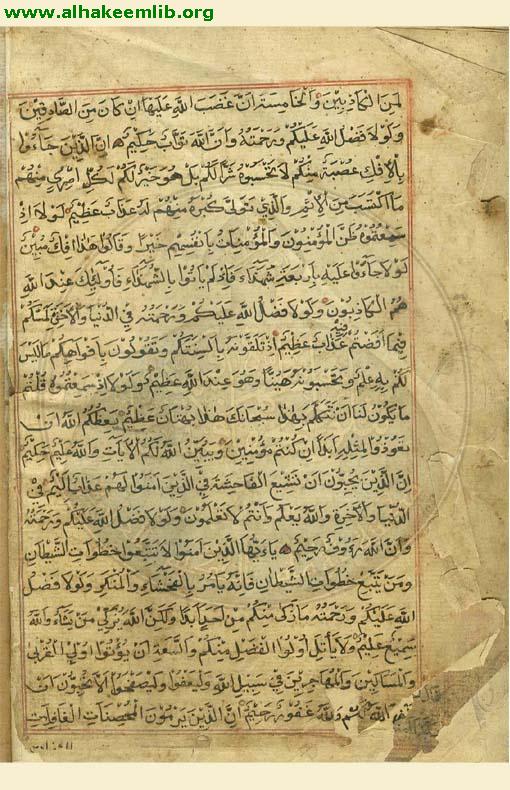 www.alhakeemlib.org
لمن الكاذبين والخامسة ان غضب الله عليها ان كان من الصادقين
ولولا فضل الله عليكم ورحمته وان الله تواب حكيم ان الذين جاءوا
بالافك عصبة منكم لا تحسبوه شرا لكم بل هو خير لكم لكل امرئ منهم
ما اكتسب من الاثم والذي تولى كبره منهم له عذاب عظيم لولا اذ
سمعتموه ظن المؤمنون والمؤمنات بانفسهم خيرا وقالوا هذا افك مبين
لولا جاءوا عليه باربعة شهداء فاذ لم ياتوا بالشهداء فاولئك عند الله
هم الكاذبون ولولا فضل الله عليكم ورحمته في الدنيا والاخرة لمسكم
فيما افضتم فيه عذاب عظيم اذ تلقونه بالسنتكم وتقولون بافواهكم ما ليس
لكم به علم وتحسبونه هينا وهو عند الله عظيم ولولا اذ سمعتموه قلتم
ما يكون لنا ان نتكلم بهذا سبحانك هذا بهتان عظيم يعظكم الله ان
تعودوا لمثله ابدا ان كنتم مؤمنين ويبين الله لكم الايات والله عليم حكيم
ان الذين يحبون ان تشيع الفاحشة في الذين امنوا لهم عذاب اليم في
الدنيا والاخرة والله يعلم وانتم لا تعلمون ولولا فضل الله عليكم ورحمته
وان الله رءوف رحيم ياءيها الذين امنوا لا تتبعوا خطوات الشيطان
ومن يتبع خطوات الشيطان فانه يامر بالفحشاء والمنكر ولولا فضل
الله عليكم ورحمته ما زكى منكم من احد ابدا ولكن الله يزكي من يشاء والله
سميع عليم ولا ياتل اولوا الفضل منكم والسعة ان يؤتوا اولي القربى
والمساكين والمهاجرين في سبيل الله وليعفوا وليصفحوا الا تحبون ان
الله لكم والله غفور رحيم ان الذين يرمون المحصنات الغافلات